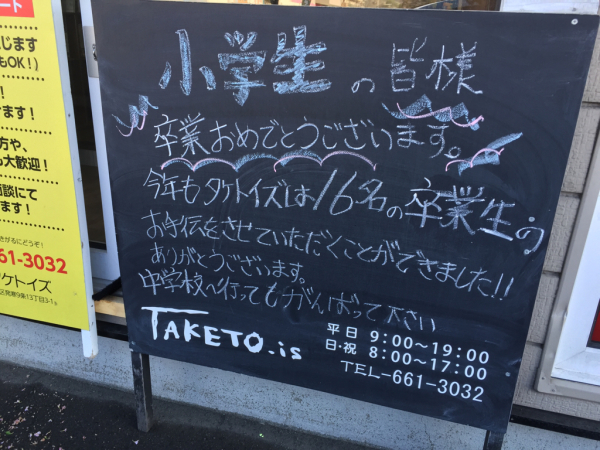 小学生の皆様
卒業おめでとうございます。
今年もタケトイズは16名の卒業生の
お手伝をさせていただくことができました!!
ありがとうございます。
中学校へ行ってもがんばって下さい
TAKETO.is
平日 9:00〜19:00
日・祝 8:00〜17:00
TEL-661-3032
ート
じます
もOK!)
!
けます!
方や、
も大歓迎!
相談にて
ます!
きがるにどうぞ!
61-3032
ケトイズ
区発寒9条13丁目3-1